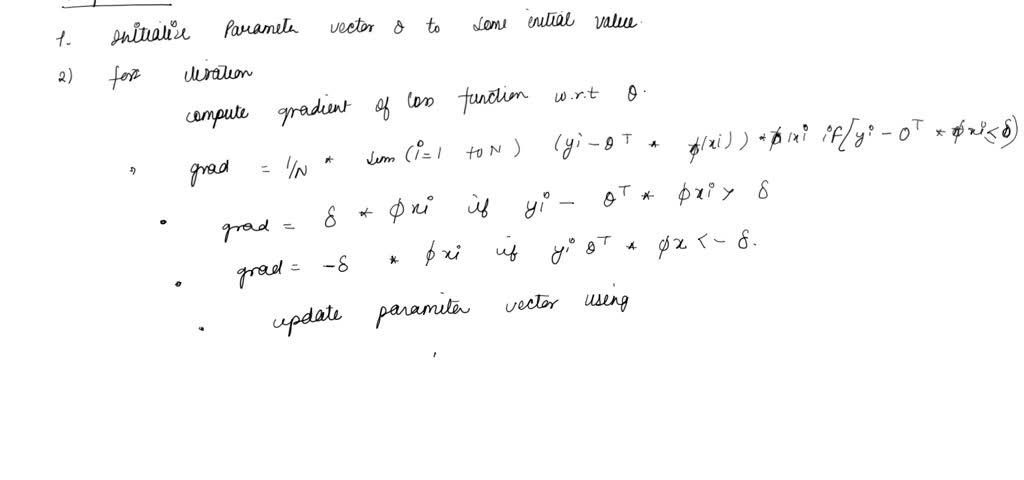 1. Initialise Parameter vector θ to some initial value.
2) for iteration
compute gradient of loss function w.r.t θ.
grad = 1/N * sum (i=1 to N) (yi - θT * ϕ(xi)) * ϕ(xi if [yi - θT * ϕxi ≤ δ)
grad = δ * ϕxi if yi - θT * ϕxi > δ
grad = -δ * ϕxi if yi θT * ϕx < -δ.
update parameter vector using